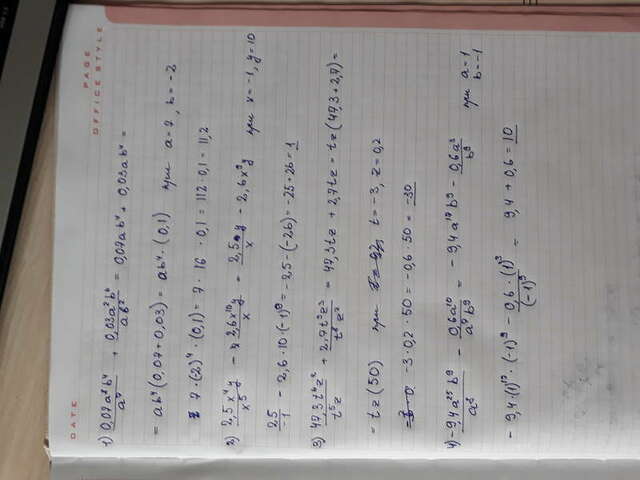 DATE
PAGE
OFFICE STYLE
1) 0,07a²b⁴/a⁹ + 0,03a²b⁶/ab² = 0,07ab⁴ + 0,03ab⁴ =
= ab⁴(0,07+0,03) = ab⁴·(0,1) при a=7, b=-2
7·(-2)⁴·(0,1) = 7·16·0,1 = 112·0,1 = 11,2
2) 2,5x⁴y/x⁵ - 2,6x¹⁰y/x = 2,5y/x - 2,6x⁹y при x=-1, y=10
2,5/-1 - 2,6·10·(-1)⁹ = -25-(-26) = -25+26 = 1
3) 47,3t⁶z⁶/t⁵z + 2,7t⁹z³/t⁸z² = 47,3tz + 2,7tz = tz(47,3+2,7) =
= tz(50) при t=-3, z=0,2
-3·0,2·50 = -0,6·50 = -30
4) -9,4a²⁵b⁹/a⁸ - 0,6a¹⁰/a⁷b⁹ = -9,4a¹⁷b⁹ - 0,6a³/b⁹ при a=1
b=-1
-9,4(1)¹⁷·(-1)⁹ - 0,6·(1)³/(-1)⁹ = 9,4+0,6 = 10